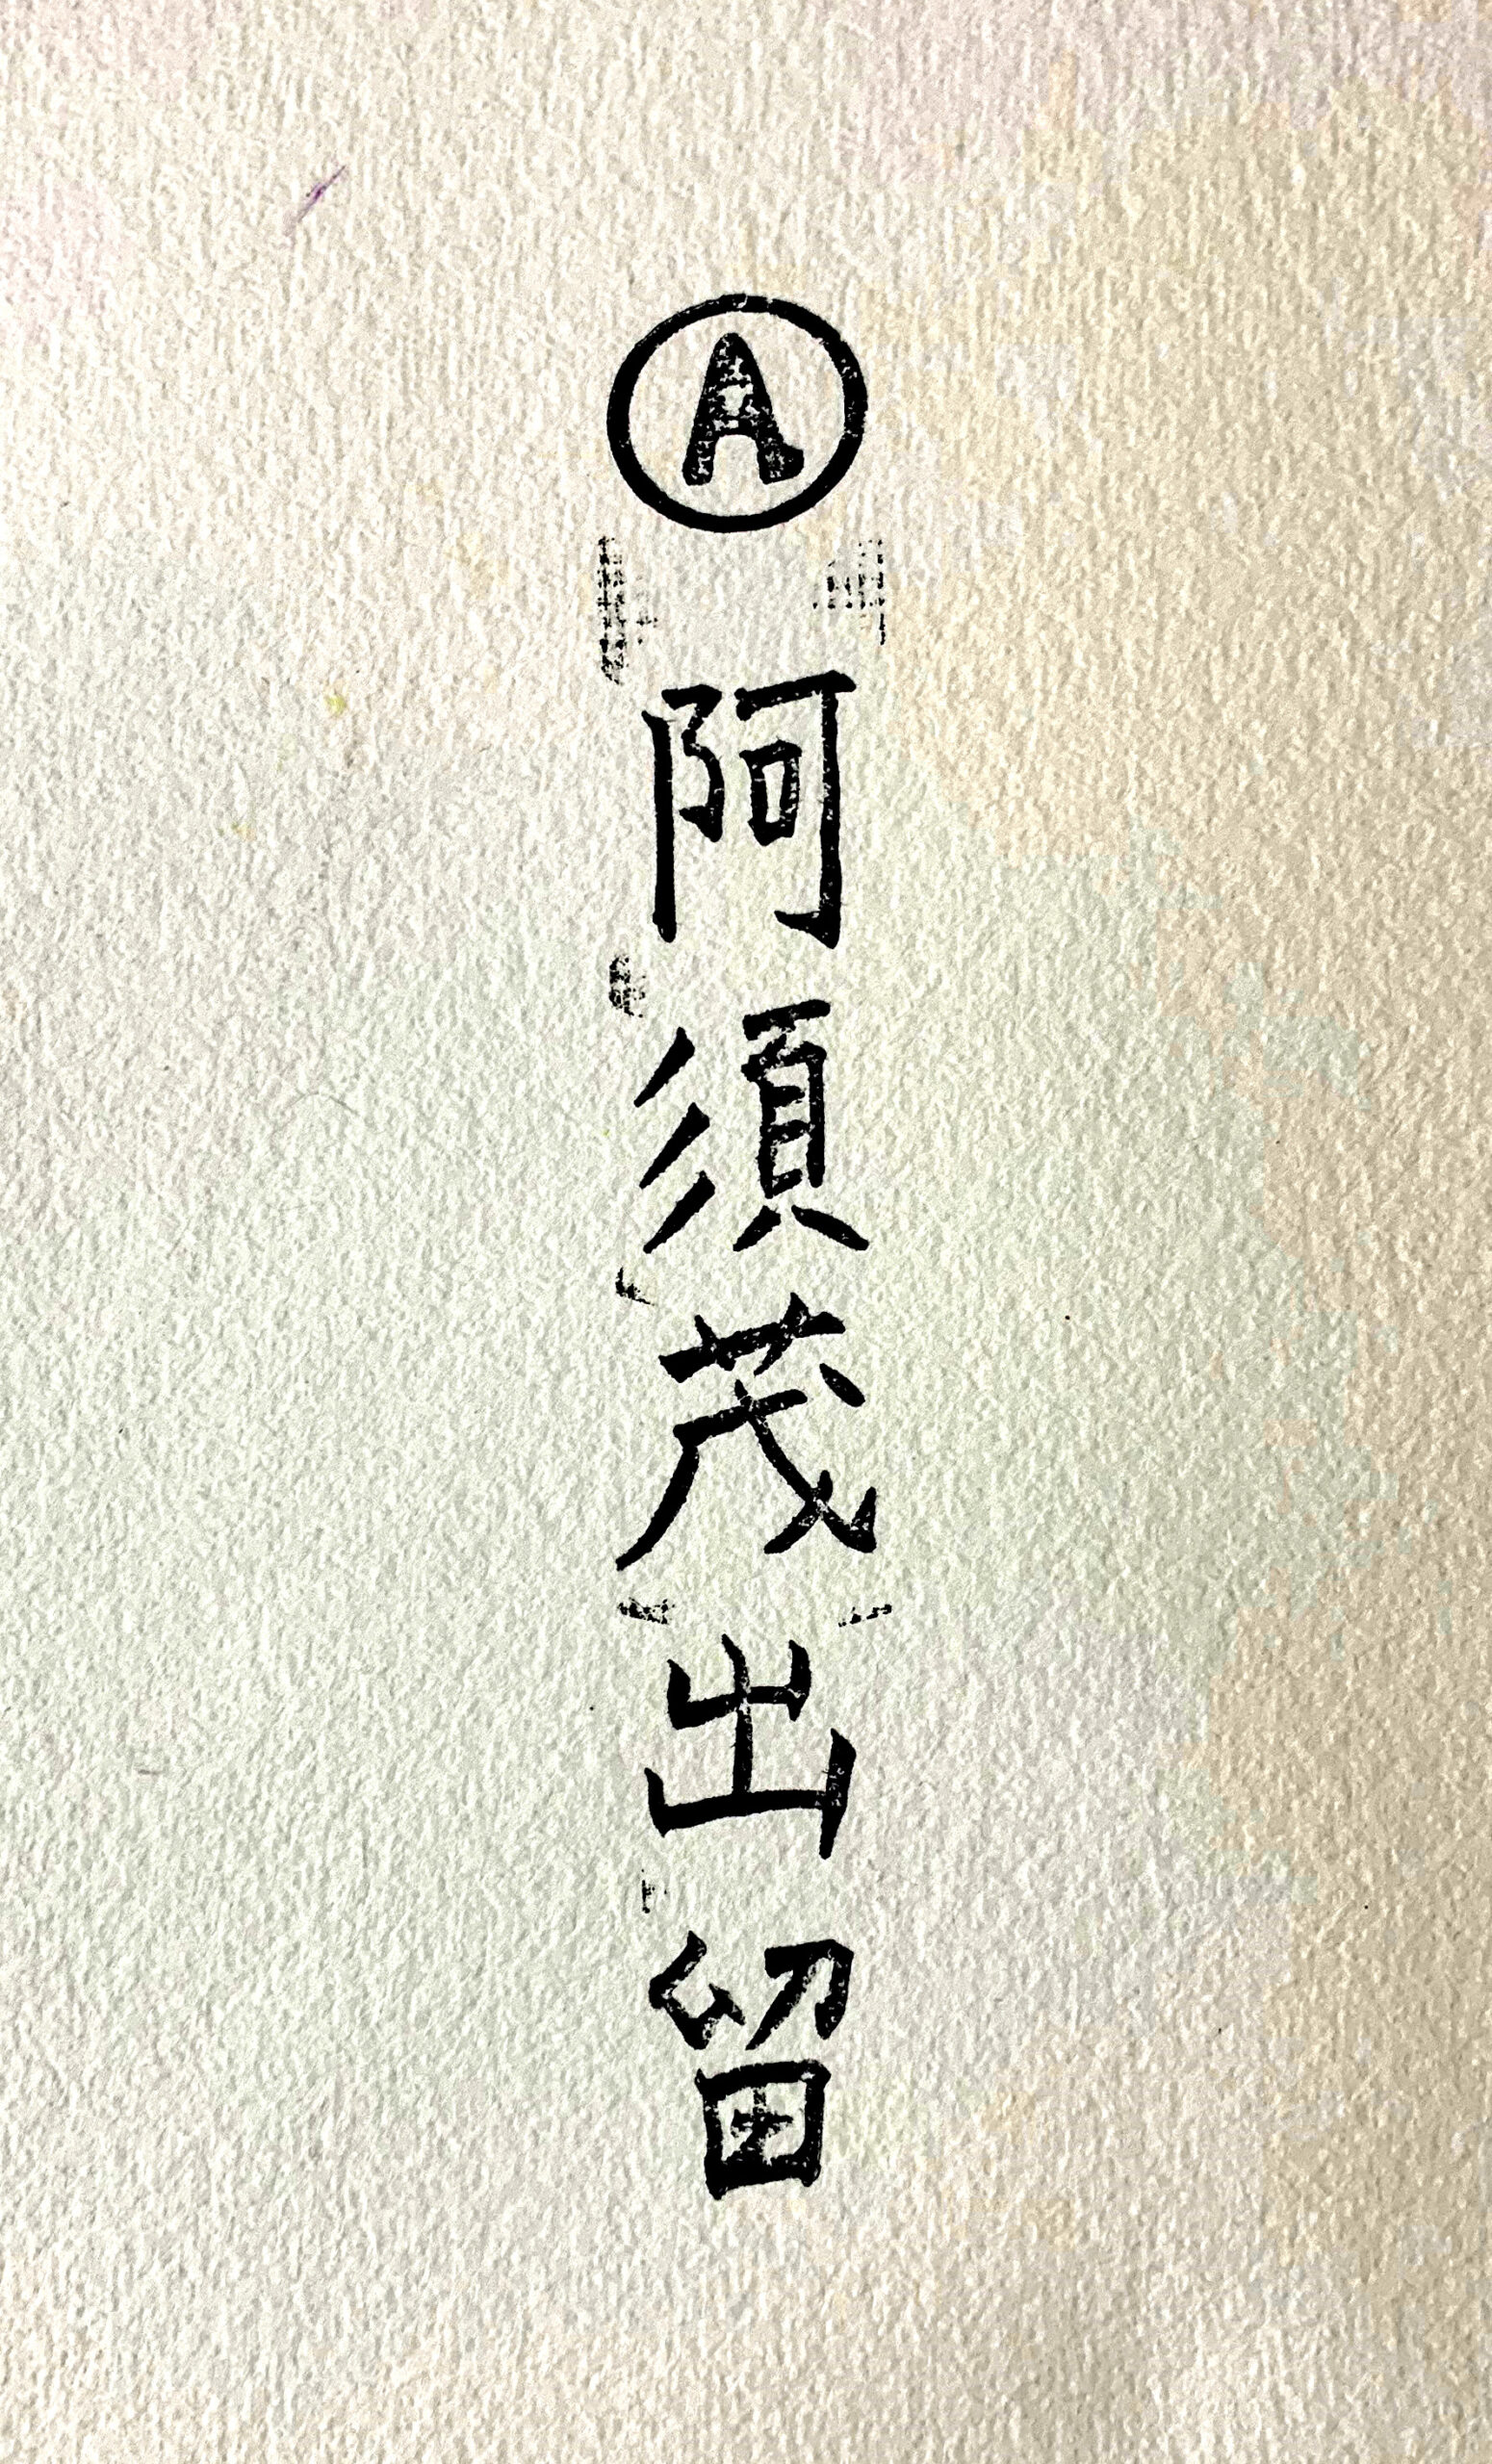 Ⓐ阿須茂出留